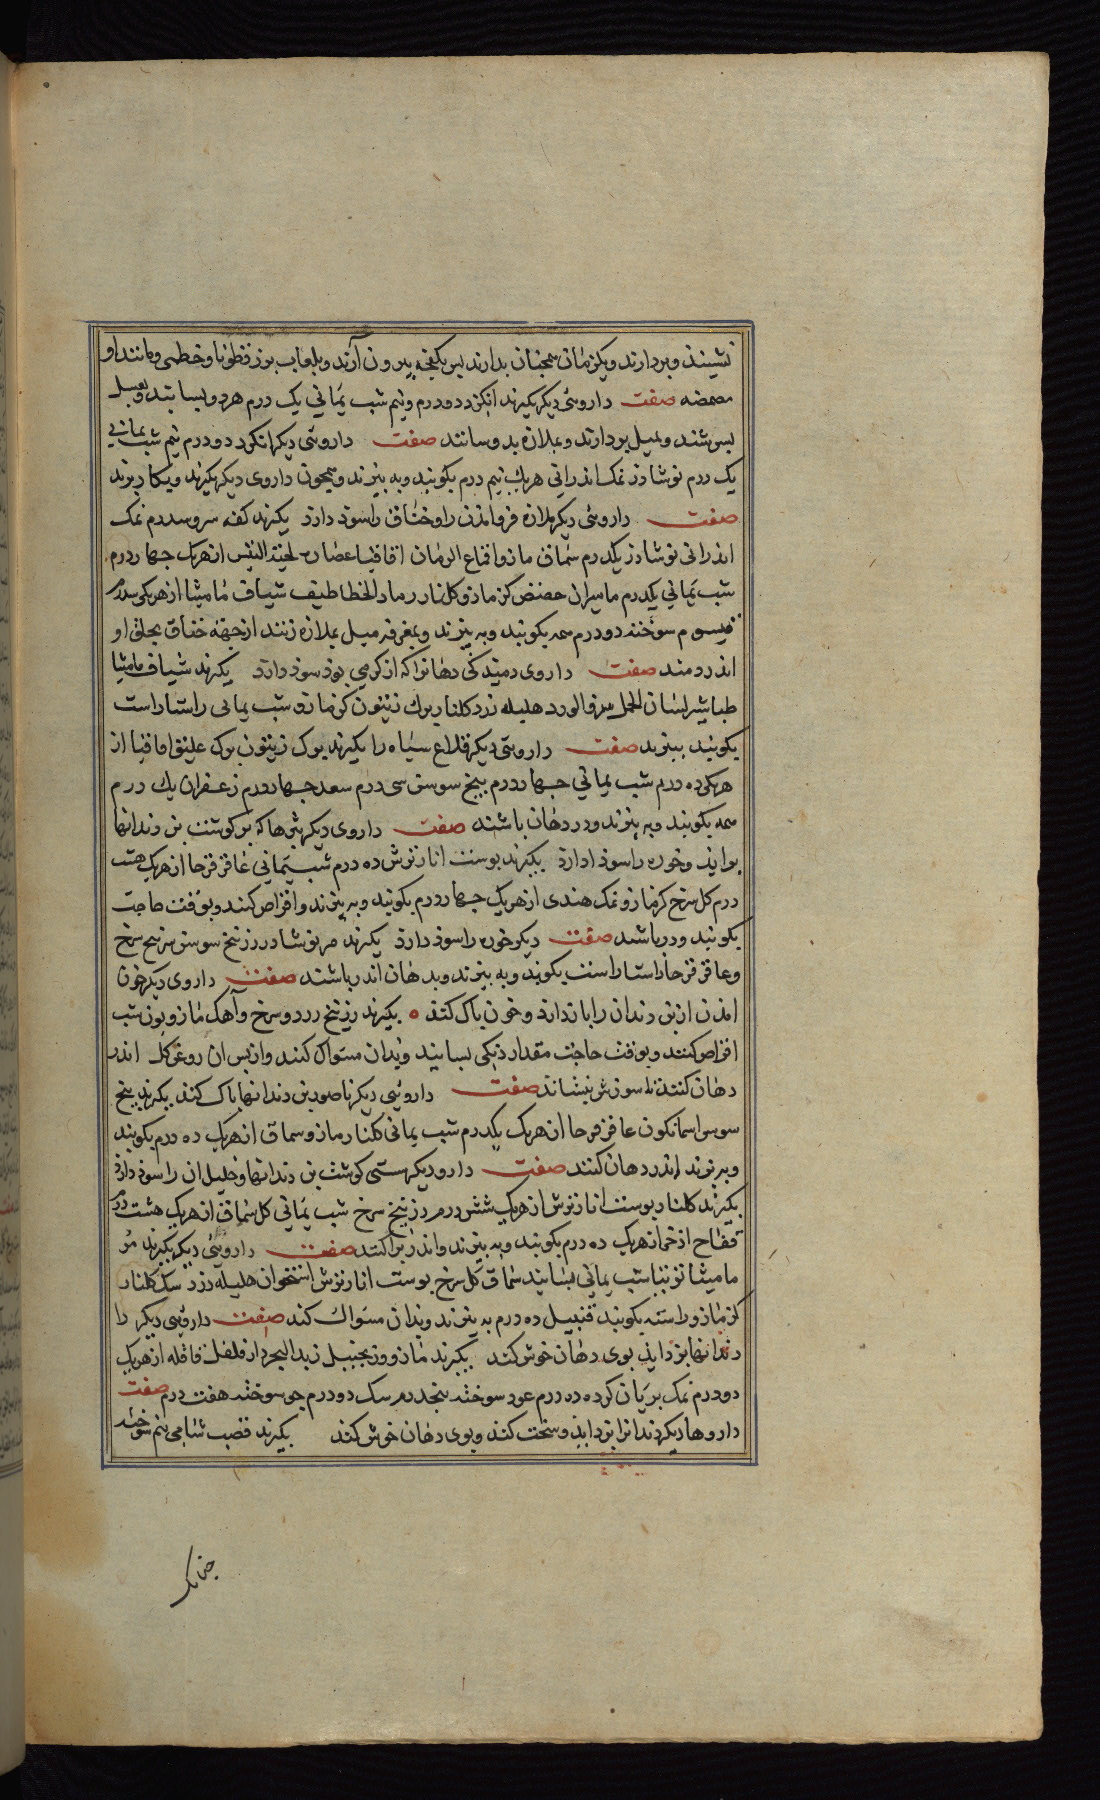 نشیند و بردارند و یکزمان همچنان بدارند پس بکبخه بیرون آرند و بلعاب بزر قطونا و خطمی و مانند او
مضمضه صفت داروئی دیکر بکیرند انکزد دو درم و نیم شب یمانی یک درم هر دو بسایند و بعسل
بسرشند و بمیل بردارند و بملازه بدو رسانند صفت داروئی دیکر انکزد دو درم نیم شب یمانی
یک درم نوشادر نمک اندرانی هریک نیم درم بکوبند و به بیزند و همچون داروی دیکر بکیرند و بکار برند
صفت داروئی دیکر ملازه فرو آمدن را و خناق را سوذ دارذ بکیرند کفه سر و سه درم نمک
اندرانی نوشادر یکدرم سماق مازو اقماع الرمان اقاقیا عصاره لحیة التیس از هریک جهار درم
شب یمانی یکدرم مامیران حضض کزمازو کلنار رماد الخطاطیف شیاف مامیثا از هریکی سه درم
سوخته دو درم همه بکوبند و به بیزند و بمغرفه میل بملازه زنند از جهة خناق بحلق او
اندر دمند صفت داروی دمیدکی دهانرا که از کرمی بوذ سوذ دارذ بکیرند شیاف مامیثا
طباشیر لسان الحمل هلیله زرد کلنار برک زیتون کزمازو شب یمانی راستاراست
بکوبند ببیزند صفت داروئی دیکر قلاع سیاه را بکیرند برک زیتون برک علیق اقاقیا از
هریکی ده درم شب یمانی جهار درم بیخ سوسن سی درم سعد جهار درم زعفران یک درم
همه بکوبند و به بیزند و در دهان باشند صفت داروی دیکر بثرها که بر کوشت بن دندانها
براید و خوره را سوذ دارذ بکیرند بوست انار ترش ده درم شب یمانی عاقرقرحا از هریک هشت
درم کل سرخ کزمازو نمک هندی از هریک جهار درم بکوبند و به بیزند و اقراص کنند و بوقت حاجت
بکوبند و در باشند صفت دیکر خوره را سوذ دارذ بکیرند مر نوشادر زرنیخ سوسن زرنیخ سرخ
و عاقرقرحا راستاراست بکوبند و به بیزند و بدهان اندر باشند صفت داروی دیکر خون
امذن از بن دندان را باز دارذ و خون باک کند ه بکیرند زرنیخ زرد و سرخ و آهک مازو بوزن شب
اقراص کنند و بوقت حاجت مقدار دنکی بسایند و بدان مسواک کنند و از بس ان روغن کل اندر
دهان کنند تا سوزش بنشاند صفت داروئی دیکر ناصور بن دندانها باک کند بکیرند بیخ
سوسن اسمانکون عاقرقرحا از هریک یکدرم شب یمانی کلنار مازو سماق از هریک ده درم بکوبند
و ببیزند و اندر دهان کنند صفت دارو دیکر سستی کوشت بن دندانها و تخلیل ان را سوذ دارذ
بکیرند کلنار بوست انار ترش از هریک شش درم زرنیخ سرخ شب یمانی کل سماق از هریک هشت درم
فقاح اذخر از هریک ده درم بکوبند و به بیزند و اندر براکنند صفت داروئی دیکر بکیرند مر
مامیثا توتیا شب یمانی بسایند سماق کل سرخ بوست انار ترش استخوان هلیله زرد سک کلنار
کزمازو راسته بکوبند قنبیل ده درم به بیزند و بدان مسواک کند صفت داروئی دیکر را
دندانها بزدایذ بوی دهان خوش کند بکیرند مازو و زنجبیل زبد البحر دارفلفل قاقله از هریک
دو درم نمک بریان کرده ده درم عود سوخته بنجدرم سک دو درم جو سوخته هفت درم صفت
داروها دیکر دندانرا بزدایذ و سخت کند و بوی دهان خوش کند بکیرند قصب شامی نیم سوخته
جنانک